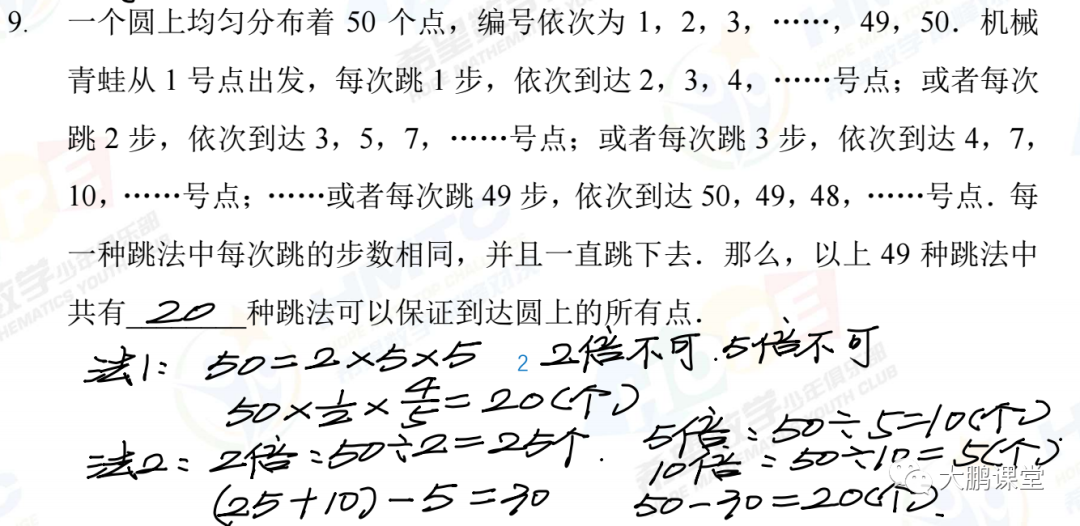 9. 一个圆上均匀分布着 50 个点，编号依次为 1，2，3，……，49，50．机械
青蛙从 1 号点出发，每次跳 1 步，依次到达 2，3，4，……号点；或者每次
跳 2 步，依次到达 3，5，7，……号点；或者每次跳 3 步，依次到达 4，7，
10，……号点；……或者每次跳 49 步，依次到达 50，49，48，……号点．每
一种跳法中每次跳的步数相同，并且一直跳下去．那么，以上 49 种跳法中
共有 20 种跳法可以保证到达圆上的所有点．
法1： 50=2×5×5 2 2倍不可.5倍不可
50×1/2×4/5=20(个)
法2：2倍：50÷2=25个. 5倍：50÷5=10(个)
10倍：50÷10=5(个)
(25+10)-5=30 50-30=20(个).
大鹏课堂